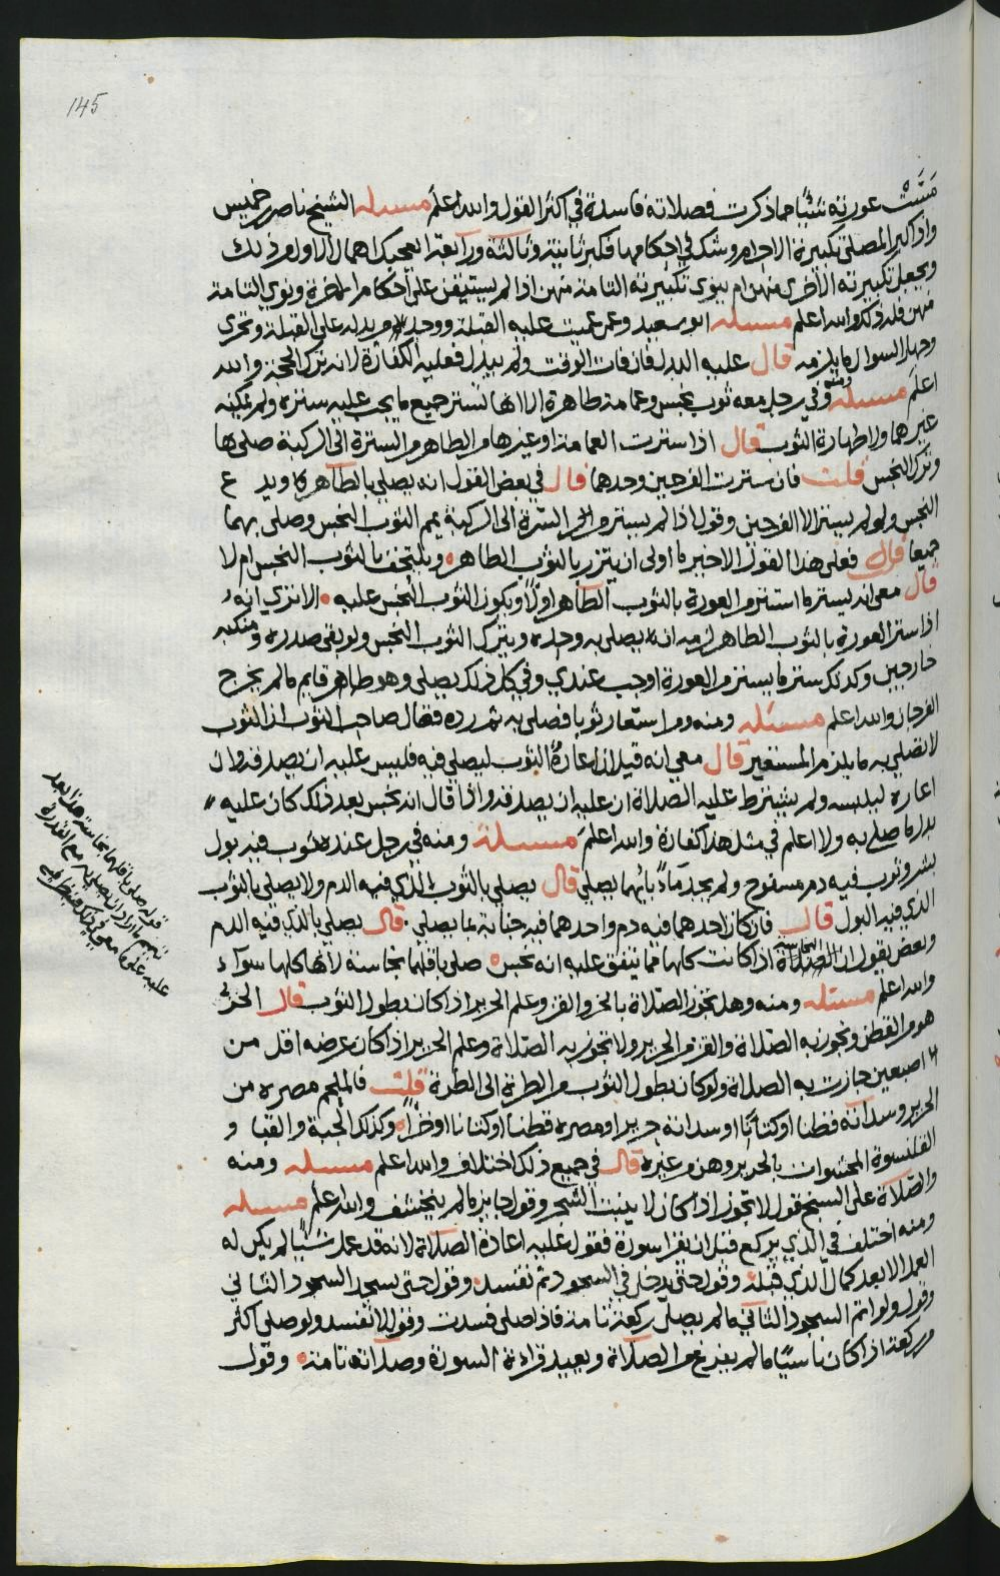 145
مسّت عورته شيئًا مما ذكرت فصلاته فاسدة في اكثر القول والله اعلم مسئله الشيخ ناصر بن خميس
واذا كبر المصلي تكبيرة الاحرام وشك في احكامها فكبر ثانية وثالثة ورابعة ايجب اهمال الاول من ذلك
ويجعل تكبيرته الاخرى منهن ام ينوي تكبيرته التامة منهن اذا لم يستيقن على احكام الاخرة ونوى التامة
منهن فله ذلك والله اعلم مسئله ابو سعيد وعمن عميت عليه القبلة ووجد من يدله على القبلة وتحرى
وجهل السوال ما يلزمه قال عليه البدل فان فات الوقت ولم يبدل فعليه الكفارة لانه ترك الحجة والله
اعلم مسئله ومنه وفي رجل معه ثوب نجس وعمامة طاهرة الا انها تستر جميع ما يجب عليه ستره ولم يمكنه
غيرهما ولا طهارة الثوب قال اذا سترت العمامة او غيرها من الطاهر من السترة الى الركبة صلى بها
وترك النجس قلت فان سترت الفرجين وحدهما قال في بعض القول انه يصلي بالطاهر ويدع
النجس ولو لم يستر الا الفرجين وقول اذا لم يستر من السرة الى الركبة يمم الثوب النجس وصلى بهما
جميعا قال فعلى هذا القول الاخير ما اولى ان يتزر بالثوب الطاهر ويلتحف بالثوب النجس ام لا
قال معي انه يستر ما استتر من العورة بالثوب الطاهر اولا ويكون الثوب النجس عليه الا ترى انه
اذا ستر العورة بالثوب الطاهر لزمه انه يصلي به وحده ويترك الثوب النجس ولو بقي صدره ومنكبه
خارجين وكذلك ستر ما يستتر من العورة اوجب عندي وفي كل ذلك يصلي وهو طاهر قايم ما لم يخرج
الفرجان والله اعلم مسئله ومنه ومن استعار ثوبا فصلى به ثم رده فقال صاحب الثوب ان الثوب
لا تصلي به ما يلزم المستعير قال معي انه قيل ان اعاره الثوب ليصلي فيه فليس عليه ان يصدقه وان
اعاره لبلبسه ولم يشترط عليه الصلاة ان عليه ان يصدقه واذا قال انه نجس بعد ذلك كان عليه
بدل ما صلى به ولا اعلم في مثل هذا كفارة والله اعلم مسئلة ومنه في رجل عنده ثوب فيه بول
بشر وثوب فيه دم مسفوح ولم يجد ماءً بايهما يصلي قال يصلي بالثوب الذي فيه الدم ولا يصلي بالثوب
الذي فيه البول قال فان كان احدهما فيه دم واحدهما فيه جنابة بما يصلي قال يصلي بالذي فيه الدم
وبعض يقول ان النجاسة اذا كانت كلها مما يتفق عليه انه نجس صلى باقلهما نجاسة لانها كلها سوآء
والله اعلم مسئله ومنه وهل تجوز الصلاة بالخز والقز وعلم الحرير اذا كان بطول الثوب قال الخز
هو من القطن وتجوز به الصلاة والقز من الحرير ولا تجوز به الصلاة وعلم الحرير اذا كان عرضه اقل من
اصبعين جازت به الصلاة ولو كان بطول الثوب من الطرة الى الطرة قلت فالملحم مصره من
الحرير وسداته قطنا او كتانًا او سداته حريرا ومصره قطنا او كتانا او خزا وكذلك الجبة والقبا و
القلنسوة المحشوات بالحرير وهن من غيره قال في جميع ذلك اختلاف والله اعلم مسئله ومنه
والصلاة على السبخ قول لا تجوز اذا كان لا ينبت الشجر وقول جايز ما لم ينخسف والله اعلم مسئله
ومنه اختلف في الذي يركع قبل ان يقرا سورة فقول عليه اعادة الصلاة لانه قد عمل شيئا لم يكن له
العمل الا بعد كمال الذي قبله وقول حتى يدخل في السجود ثم تفسد وقول حتى يسجد السجود الثاني
وقول ولو اتم السجود الثاني ما لم يصلي ركعة تامة فاذا صلى فسدت وقول لا تفسد ولو صلى اكثر
من ركعة اذا كان ناسيًا ما لم يفرغ من الصلاة ويعيد قراءة السورة وصلاته تامة وقول
قوله صلى باقلهما نجاسة